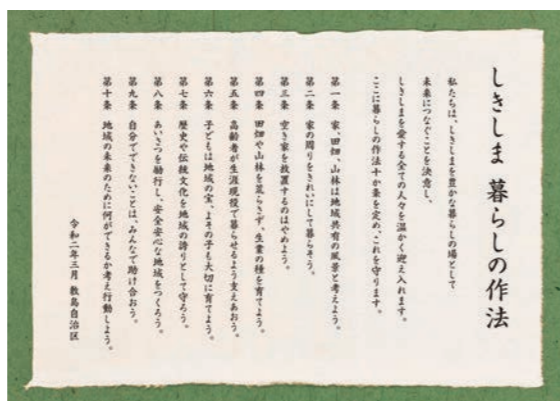 しきしま 暮らしの作法
私たちは、しきしまを豊かな暮らしの場として
未来につなぐことを決意し、
しきしまを愛する全ての人々を温かく迎え入れます。
ここに暮らしの作法十か条を定め、これを守ります。
第一条 家、田畑、山林は地域共有の風景と考えよう。
第二条 家の周りをきれいにして暮らそう。
第三条 空き家を放置するのはやめよう。
第四条 田畑や山林を荒らさず、生業の種を育てよう。
第五条 高齢者が生涯現役で暮らせるよう支えあおう。
第六条 子どもは地域の宝、よその子も大切に育てよう。
第七条 歴史や伝統文化を地域の誇りとして守ろう。
第八条 あいさつを励行し、安全安心な地域をつくろう。
第九条 自分でできないことは、みんなで助け合おう。
第十条 地域の未来のために何ができるか考え行動しよう。
令和二年三月 敷島自治区